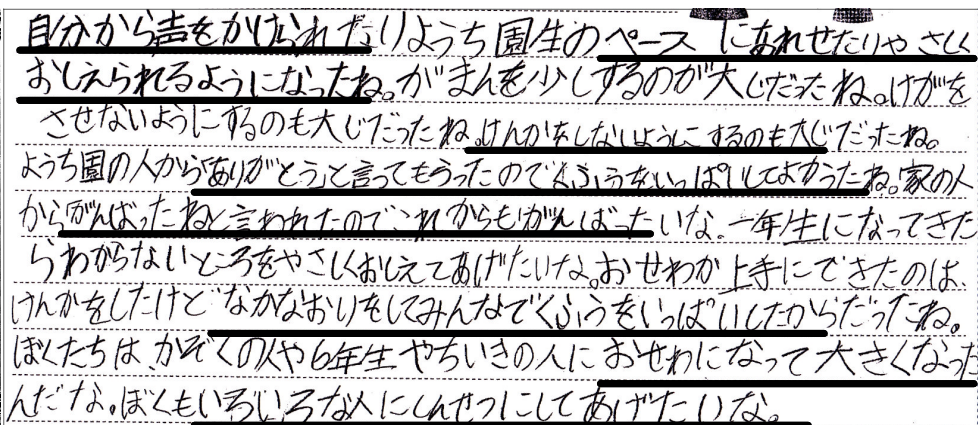 自分から声をかけられたりようち園生のペースにあわせたりやさしく
おしえられるようになったね。がまんを少しするのが大じだったね。けがを
させないようにするのも大じだったね。けんかをしないようにするのも大じだったね。
ようち園の人から「ありがとう」と言ってもらったのでくふうをいっぱいしてよかったね。家の人
からがんばったねと言われたのでこれからもがんばったいな。一年生になってきた
らわからないところをやさしくおしえてあげたいな。おせわが上手にできたのは、
けんかをしたけどなかなおりをしてみんなでくふうをいっぱいしたからだったね。
ぼくたちは、かぞくの人や6年生やちいきの人におせわになって大きくなった
んだな。ぼくもいろいろな人にしんせつにしてあげたいな。